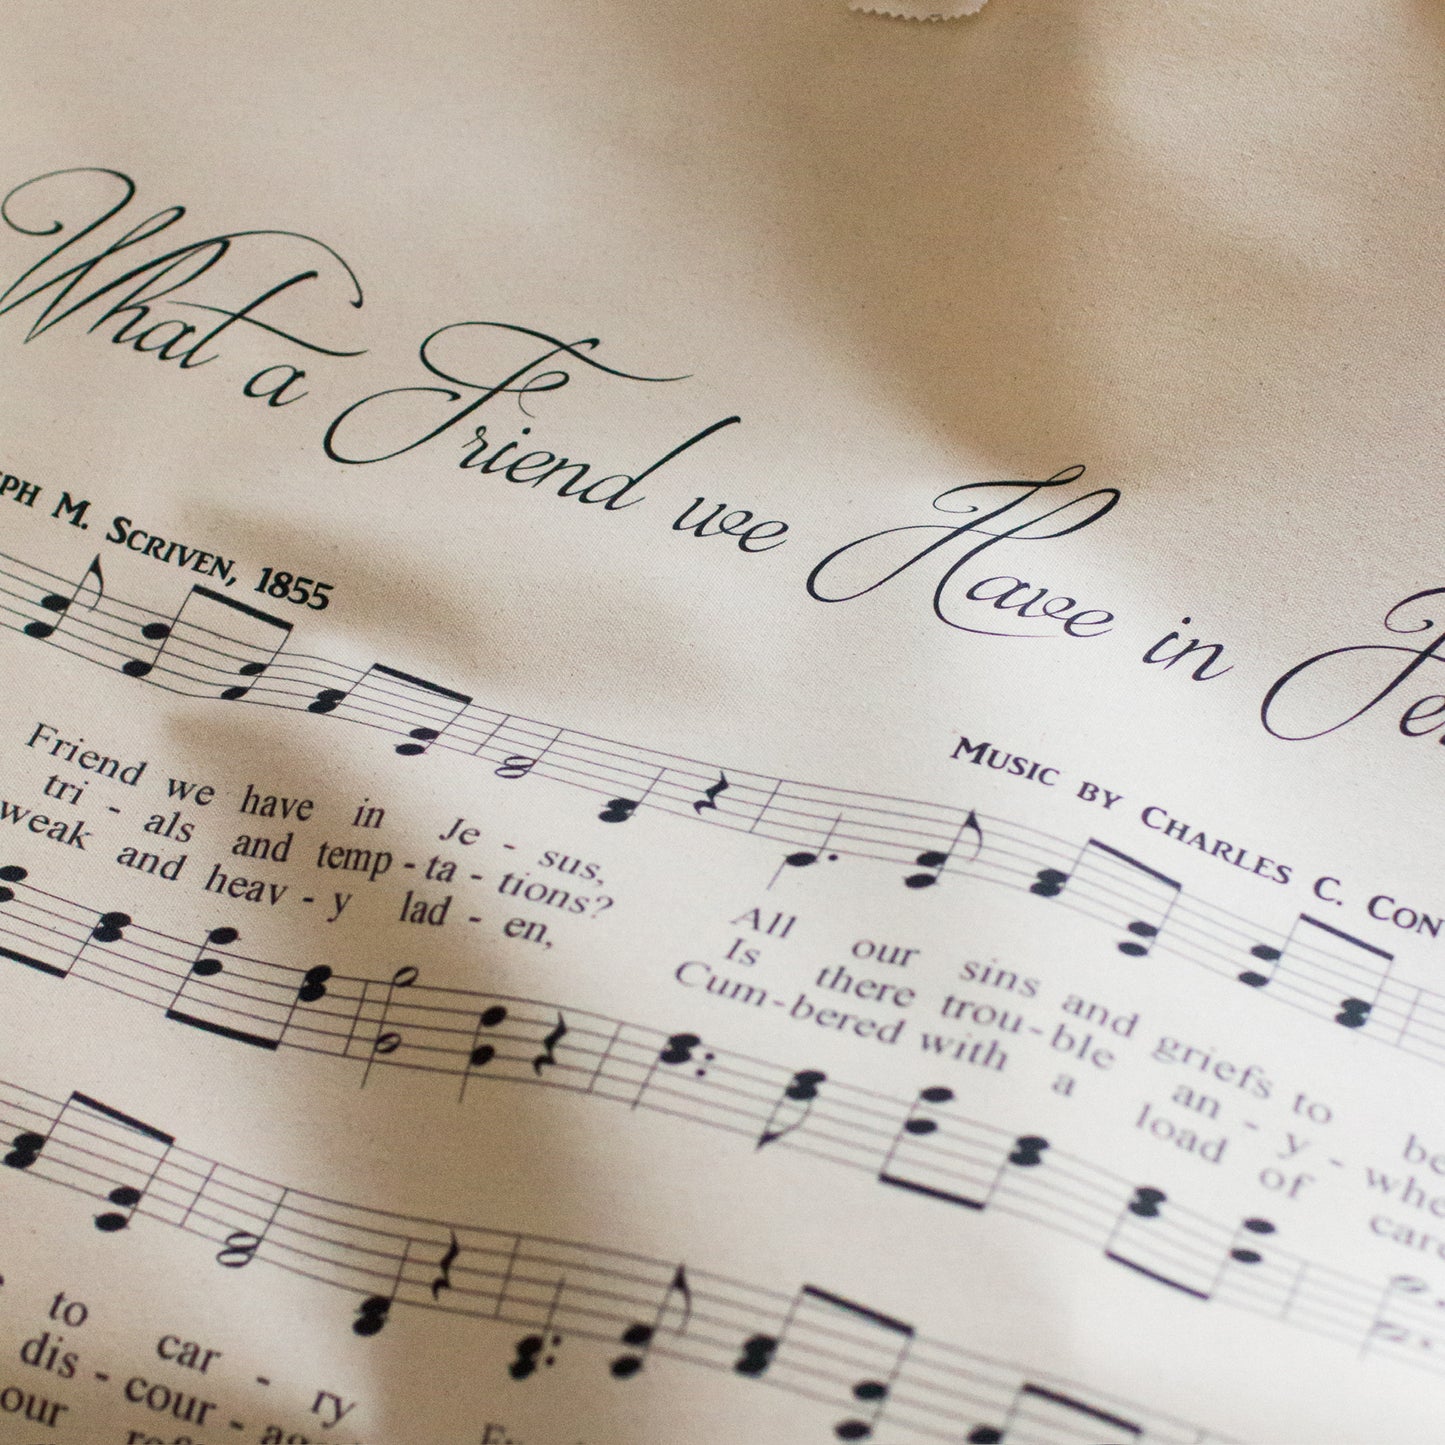 What a Friend we Have in
M. SCRIVEN, 1855
MUSIC BY CHARLES C.
Friend we have in Je - sus,
tri - als and temp - ta - tions?
weak and heav - y lad - en,
All our sins and griefs to
Is there trou - ble an - y - 
Cum - bered with a load of
to car - ry
dis - cour -
our